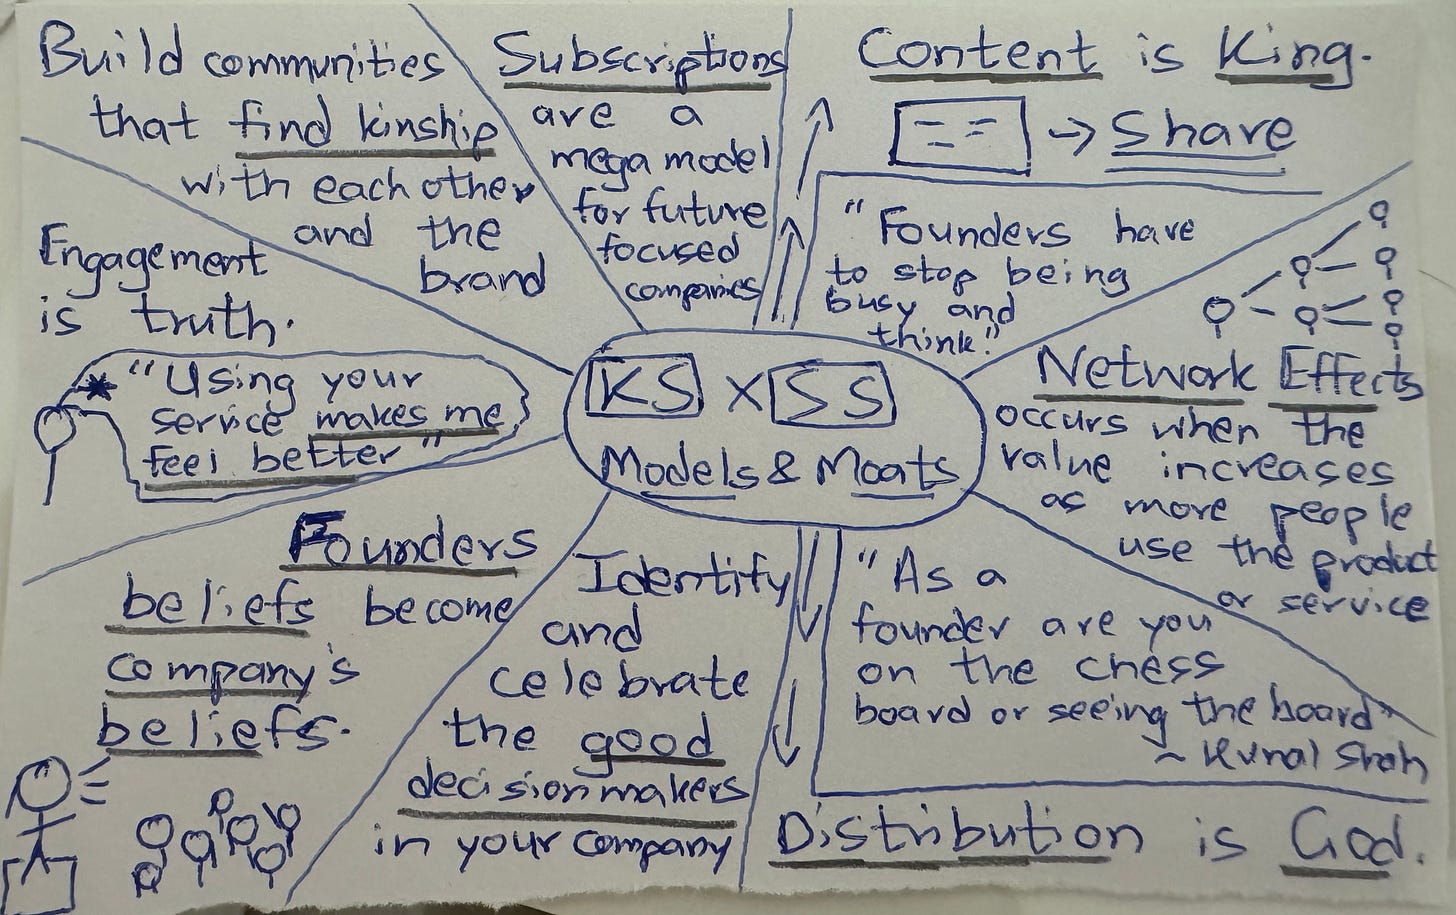 Build communities
that find kinship
with each other
and the
brand
Subscriptions
are a
mega model
for future
focused
companies
Content is King.
→ Share
"Founders have
to stop being
busy and
think."
Network Effects
occurs when the
value increases
as more people
use the product
or service
"As a
founder are you
on the chess
board or seeing the board"
~ Kunal Shah
Distribution is God.
Identify
and
celebrate
the good
decision makers
in your company
Founders
beliefs become
company's
beliefs.
Engagement
is truth.
"Using your
service makes me
feel better"
KS x SS
Models & Moats